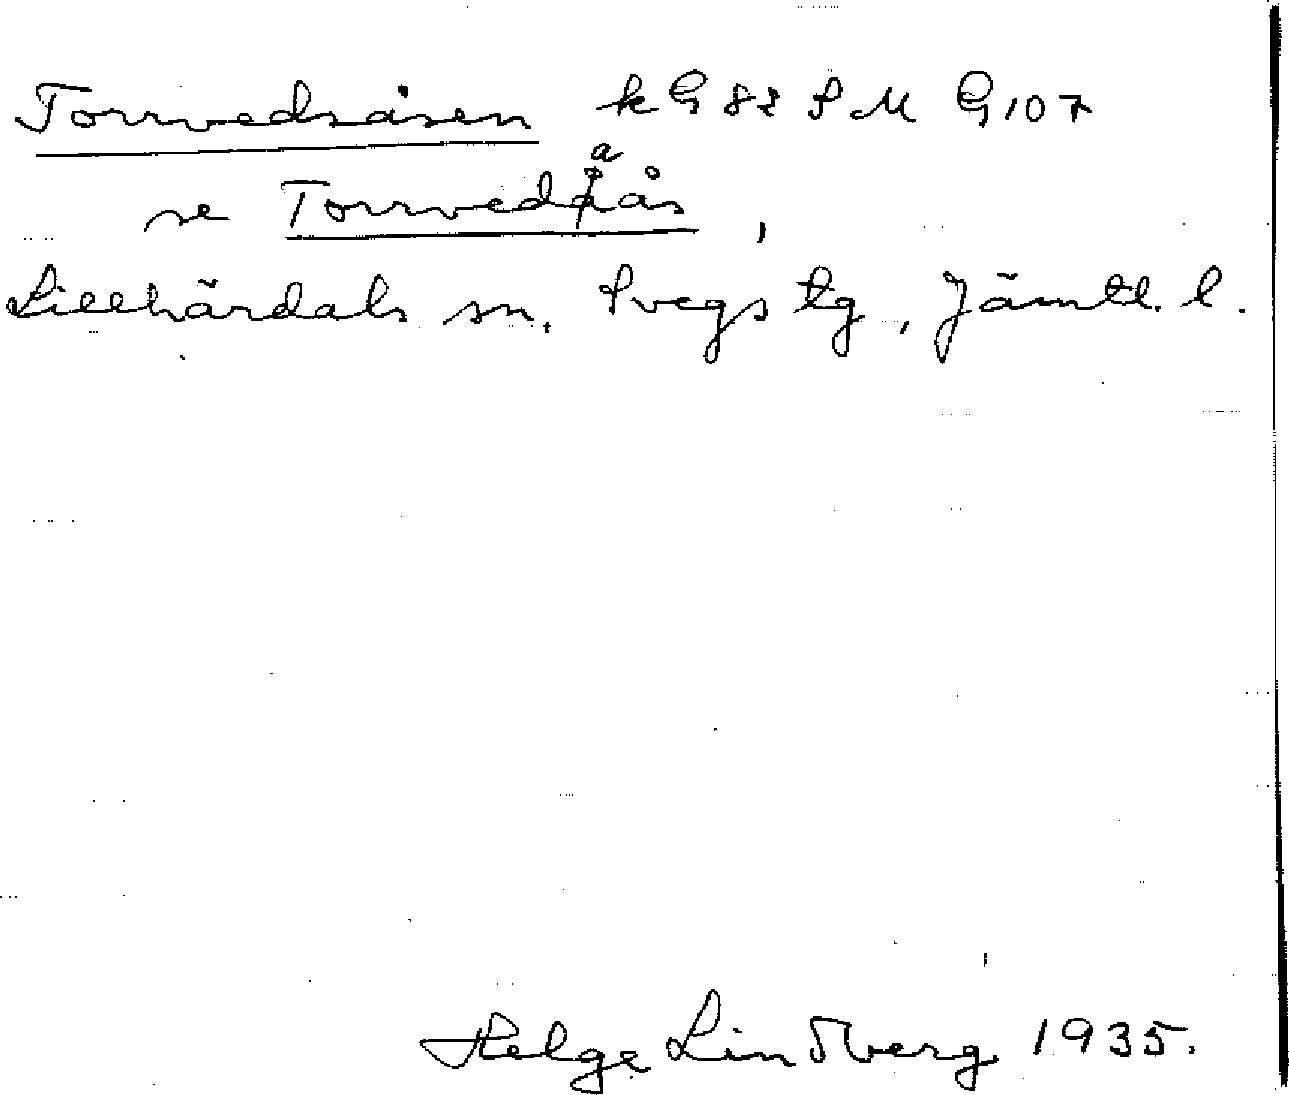 Torrvedsåsen k G 82 S M G 107
se Torrvedaås,
Lillhärdals sn. Svegs tg, Jämtl. l.
Helge Lindberg 1935.